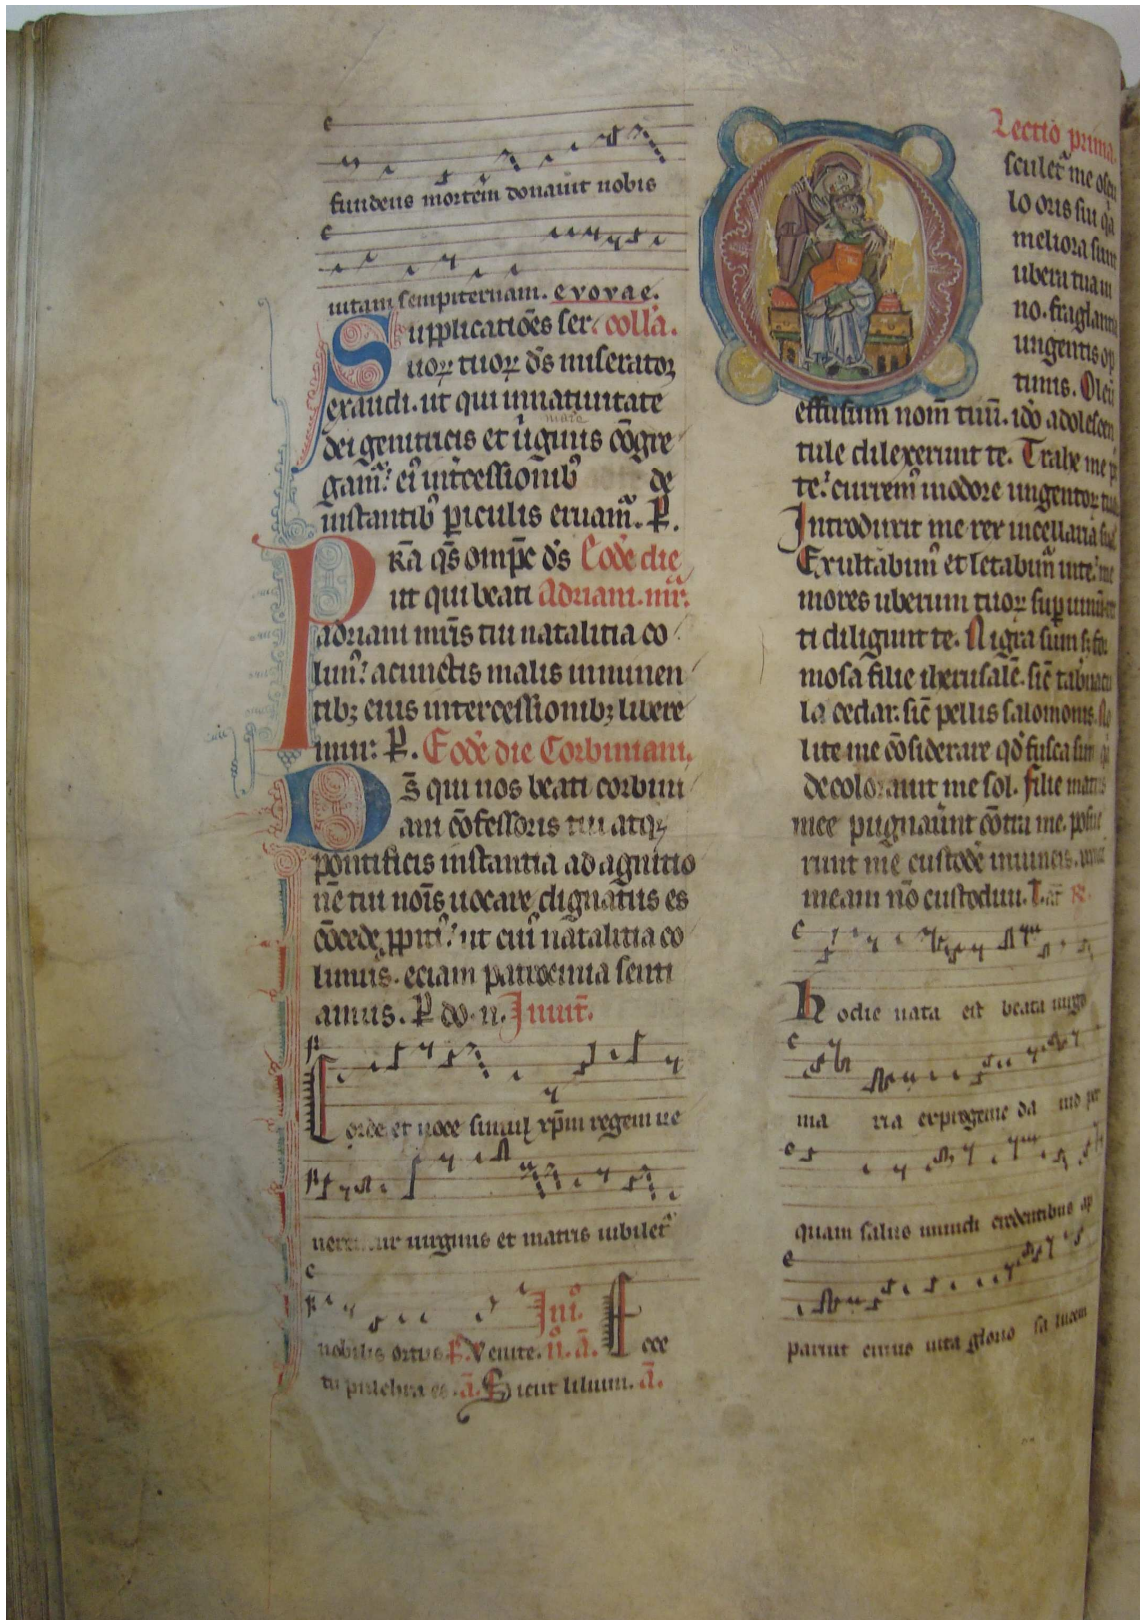 fundens mortem donauit nobis
uitam sempiternam. evovae.
Supplicatiōes ser collā.
uoꝝ tuoꝝ ds̄ miseratoꝛ
exaudi. ut qui innatiuitate
marie
dei genitricis et uginis cōgre
gam᷑ ei᷒ intercessionib᷒ de
instantib᷒ piculis eruam᷑. P.
PRā qs̄ omp̄e ds̄ Eodē die
ut qui beati Adriani. mr̄.
adriani mr̄is tui natalitia co
lim᷒ acunctis malis iminen
tibꝫ eius intercessionibꝫ libere
mur. P. Eodē die Corbiniani.
Ds̄ qui nos beati corbini
ani cōfessoris tui atqꝫ
pontificis instantia ad agnitio
nē tui nōis uocare dignatus es
cōcede ꝓpiti᷒ ut cui᷒ natalitia co
limus. eciam patrocinia senti
amus. P do. n. Inuit.
Corde et uoce simul xp̄m regem ue
neremur uirginis et matris iubilet
nobilis ortus. P. Venite. N. ā. Ini. Ecce
tu pulchra es. ā. Sicut lilium. ā.
Lectio prima.
Osculet᷑ me oscu
lo oris sui qa
meliora sunt
ubera tua ui
no. fraglantia
ungentis op
timis. Oleū
effusum nom̄ tuū. ido adolescen
tule dilexerunt te. Trahe me p᷒
te. currem᷒ inodore ungentoꝝ tuoꝝ
Introduxit me rex incellaria sua
Exultabim᷒ et letabim᷑ inte. me
mores uberum tuoꝝ sup uinū. rec
ti diligunt te. Nigra sum s; for
mosa filie iherusalē. sic̄ tabnacu
la cedar. sic̄ pellis salomonis. No
lite me cōsiderare qd̄ fusca sum q̄
decolorauit me sol. filie matris
mee pugnauerunt cōtra me. posue
runt me custodē inuineis. uineā
meam nō custodiui. T. ā R.
Hodie nata est beata uirgo
maria exprogenie dauid per
quam salus mundi credentibus ap
paruit cuius uita gloriosa lucem